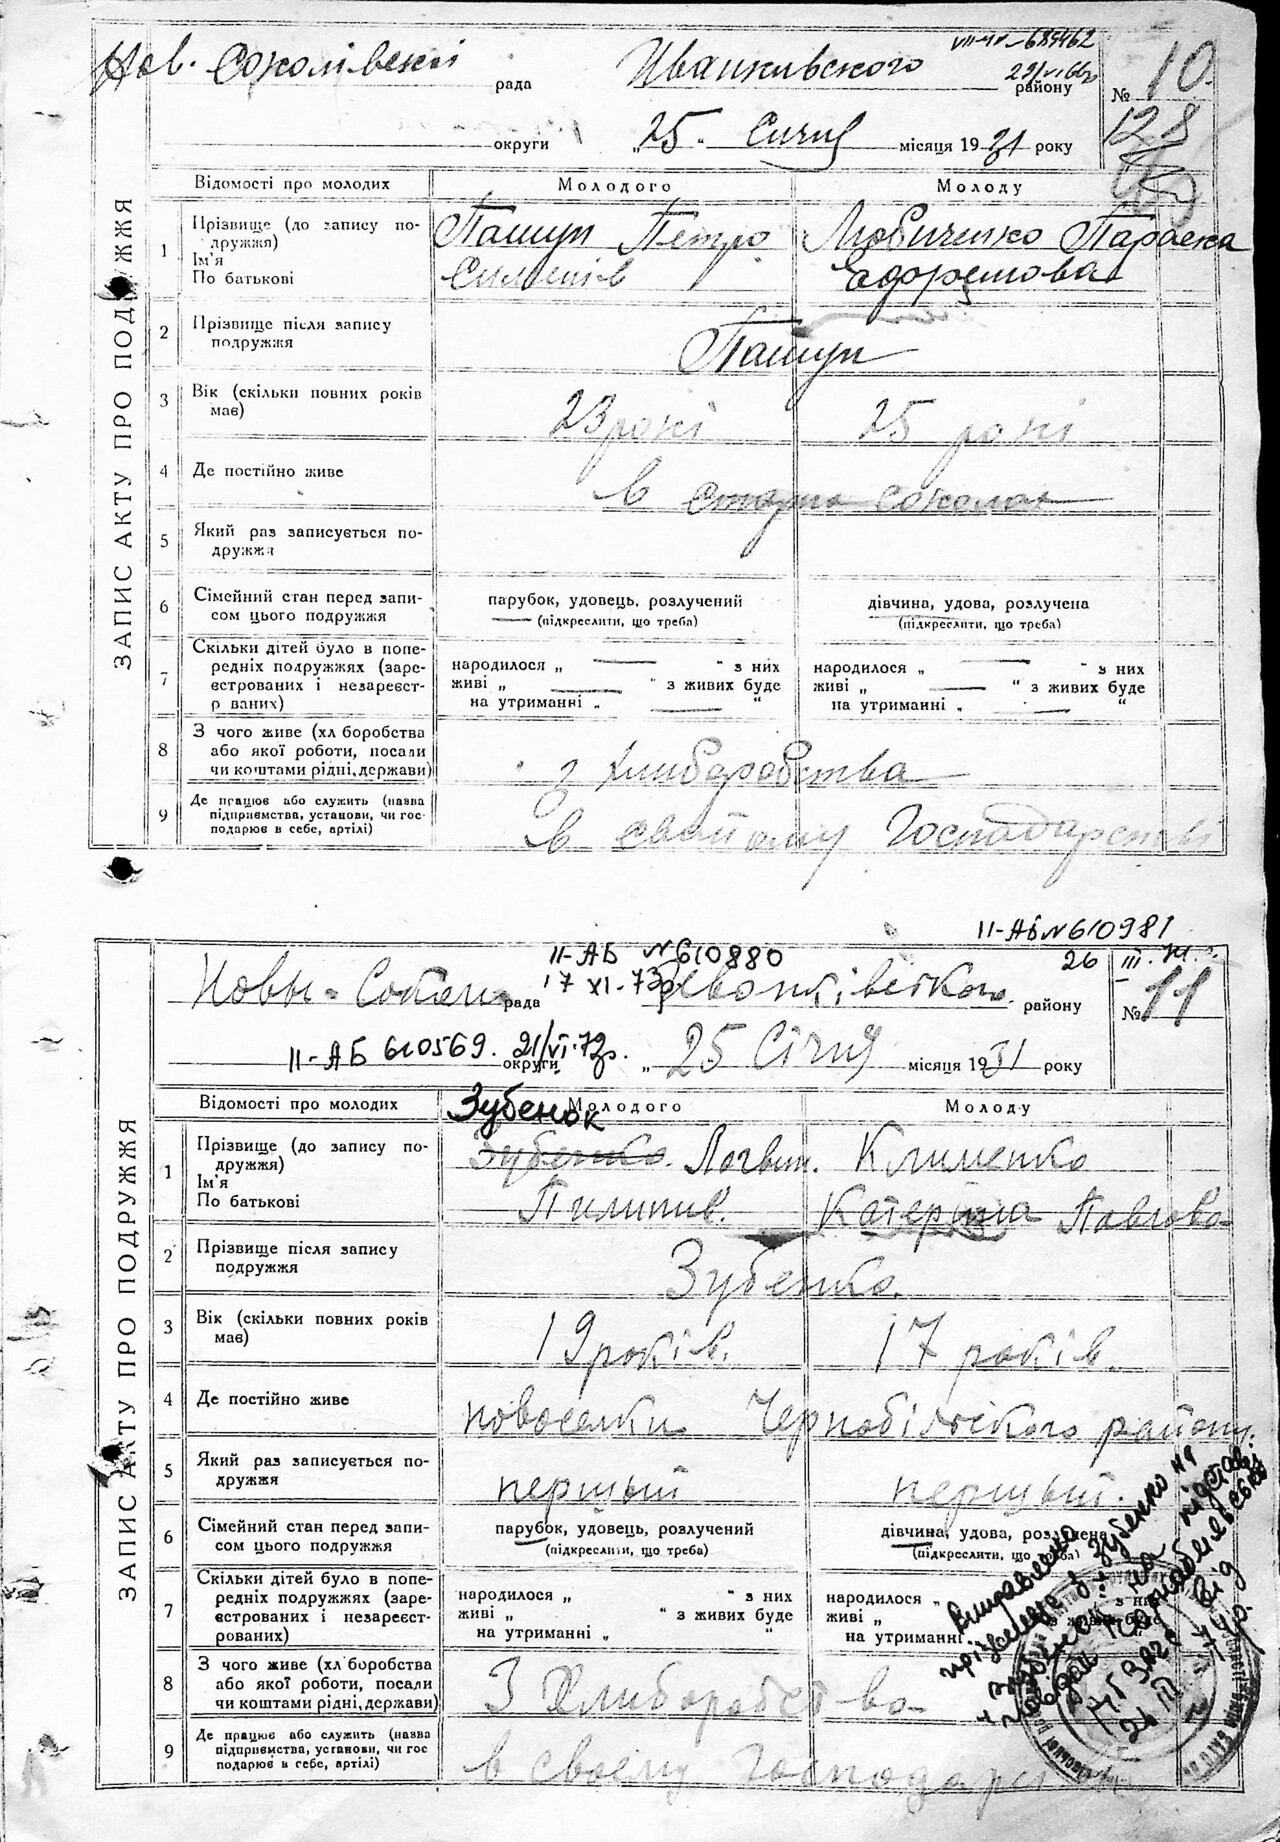 Нов. Соколівекі рада Иванкивского району № 10.
VII-ЧУ №685462
29/VI 66р
128
округи „25." Сичня місяця 1931 року
ЗАПИС АКТУ ПРО ПОДРУЖЖЯ
Відомості про молодих Молодого Молоду
1 Прізвище (до запису подружжя) Ім'я По батькові
Пашун Петро Любиченко Параска
Ефремова
2 Прізвище після запису подружжя
Пашун
3 Вік (скільки повних років має) 23 рокі 25 рокі
4 Де постійно живе в старих соколах
5 Який раз записується подружжя
6 Сімейний стан перед записом цього подружжя парубок, удовець, розлучений дівчина, удова, розлучена
(підкреслити, що треба) (підкреслити, що треба)
7 Скільки дітей було в попередніх подружжях (зареєстрованих і незареєстрованих)
народилося „ — " з них народилося „ — " з них
живі „ — " з живих буде живі „ — " з живих буде
на утриманні „ — " на утриманні „ — "
8 З чого живе (хліборобства або якої роботи, посади чи коштами рідні, держави) з хлиборобства
9 Де працює або служить (назва підприємства, установи, чи господарює в себе, артілі) в своїому Господарстві
II-АБ №610981
II-АБ №610880 26 III
17 XI-73р
Новы-Сокол. рада району № 11
II-АБ 610569. 21/VI-72р.
округи „25 Січня місяця 1931 року
ЗАПИС АКТУ ПРО ПОДРУЖЖЯ
Відомості про молодих Молодого Молоду
Зубенок
1 Прізвище (до запису подружжя) Ім'я По батькові
Зубенко. Логвин. Клименко
Пилипив. Катеріна Павлова
2 Прізвище після запису подружжя
Зубенко.
3 Вік (скільки повних років має) 19 років. 17 років.
4 Де постійно живе новоселки Чернобільского району.
5 Який раз записується подружжя перцый перцый.
6 Сімейний стан перед записом цього подружжя парубок, удовець, розлучений дівчина, удова, розлучена
(підкреслити, що треба) (підкреслити, що треба)
7 Скільки дітей було в попередніх подружжях (зареєстрованих і незареєстрованих)
народилося „ " з них народилося „ з них
живі „ " з живих буде живі „ з живих буде
на утриманні „ " на утриманні
8 З чого живе (хліборобства або якої роботи, посади чи коштами рідні, держави) З Хлиборобства
9 Де працює або служить (назва підприємства, установи, чи господарює в себе, артілі) в своему Господарстві
Виправлено
прізвище з Зубенко на
Зубенок на підставі
від